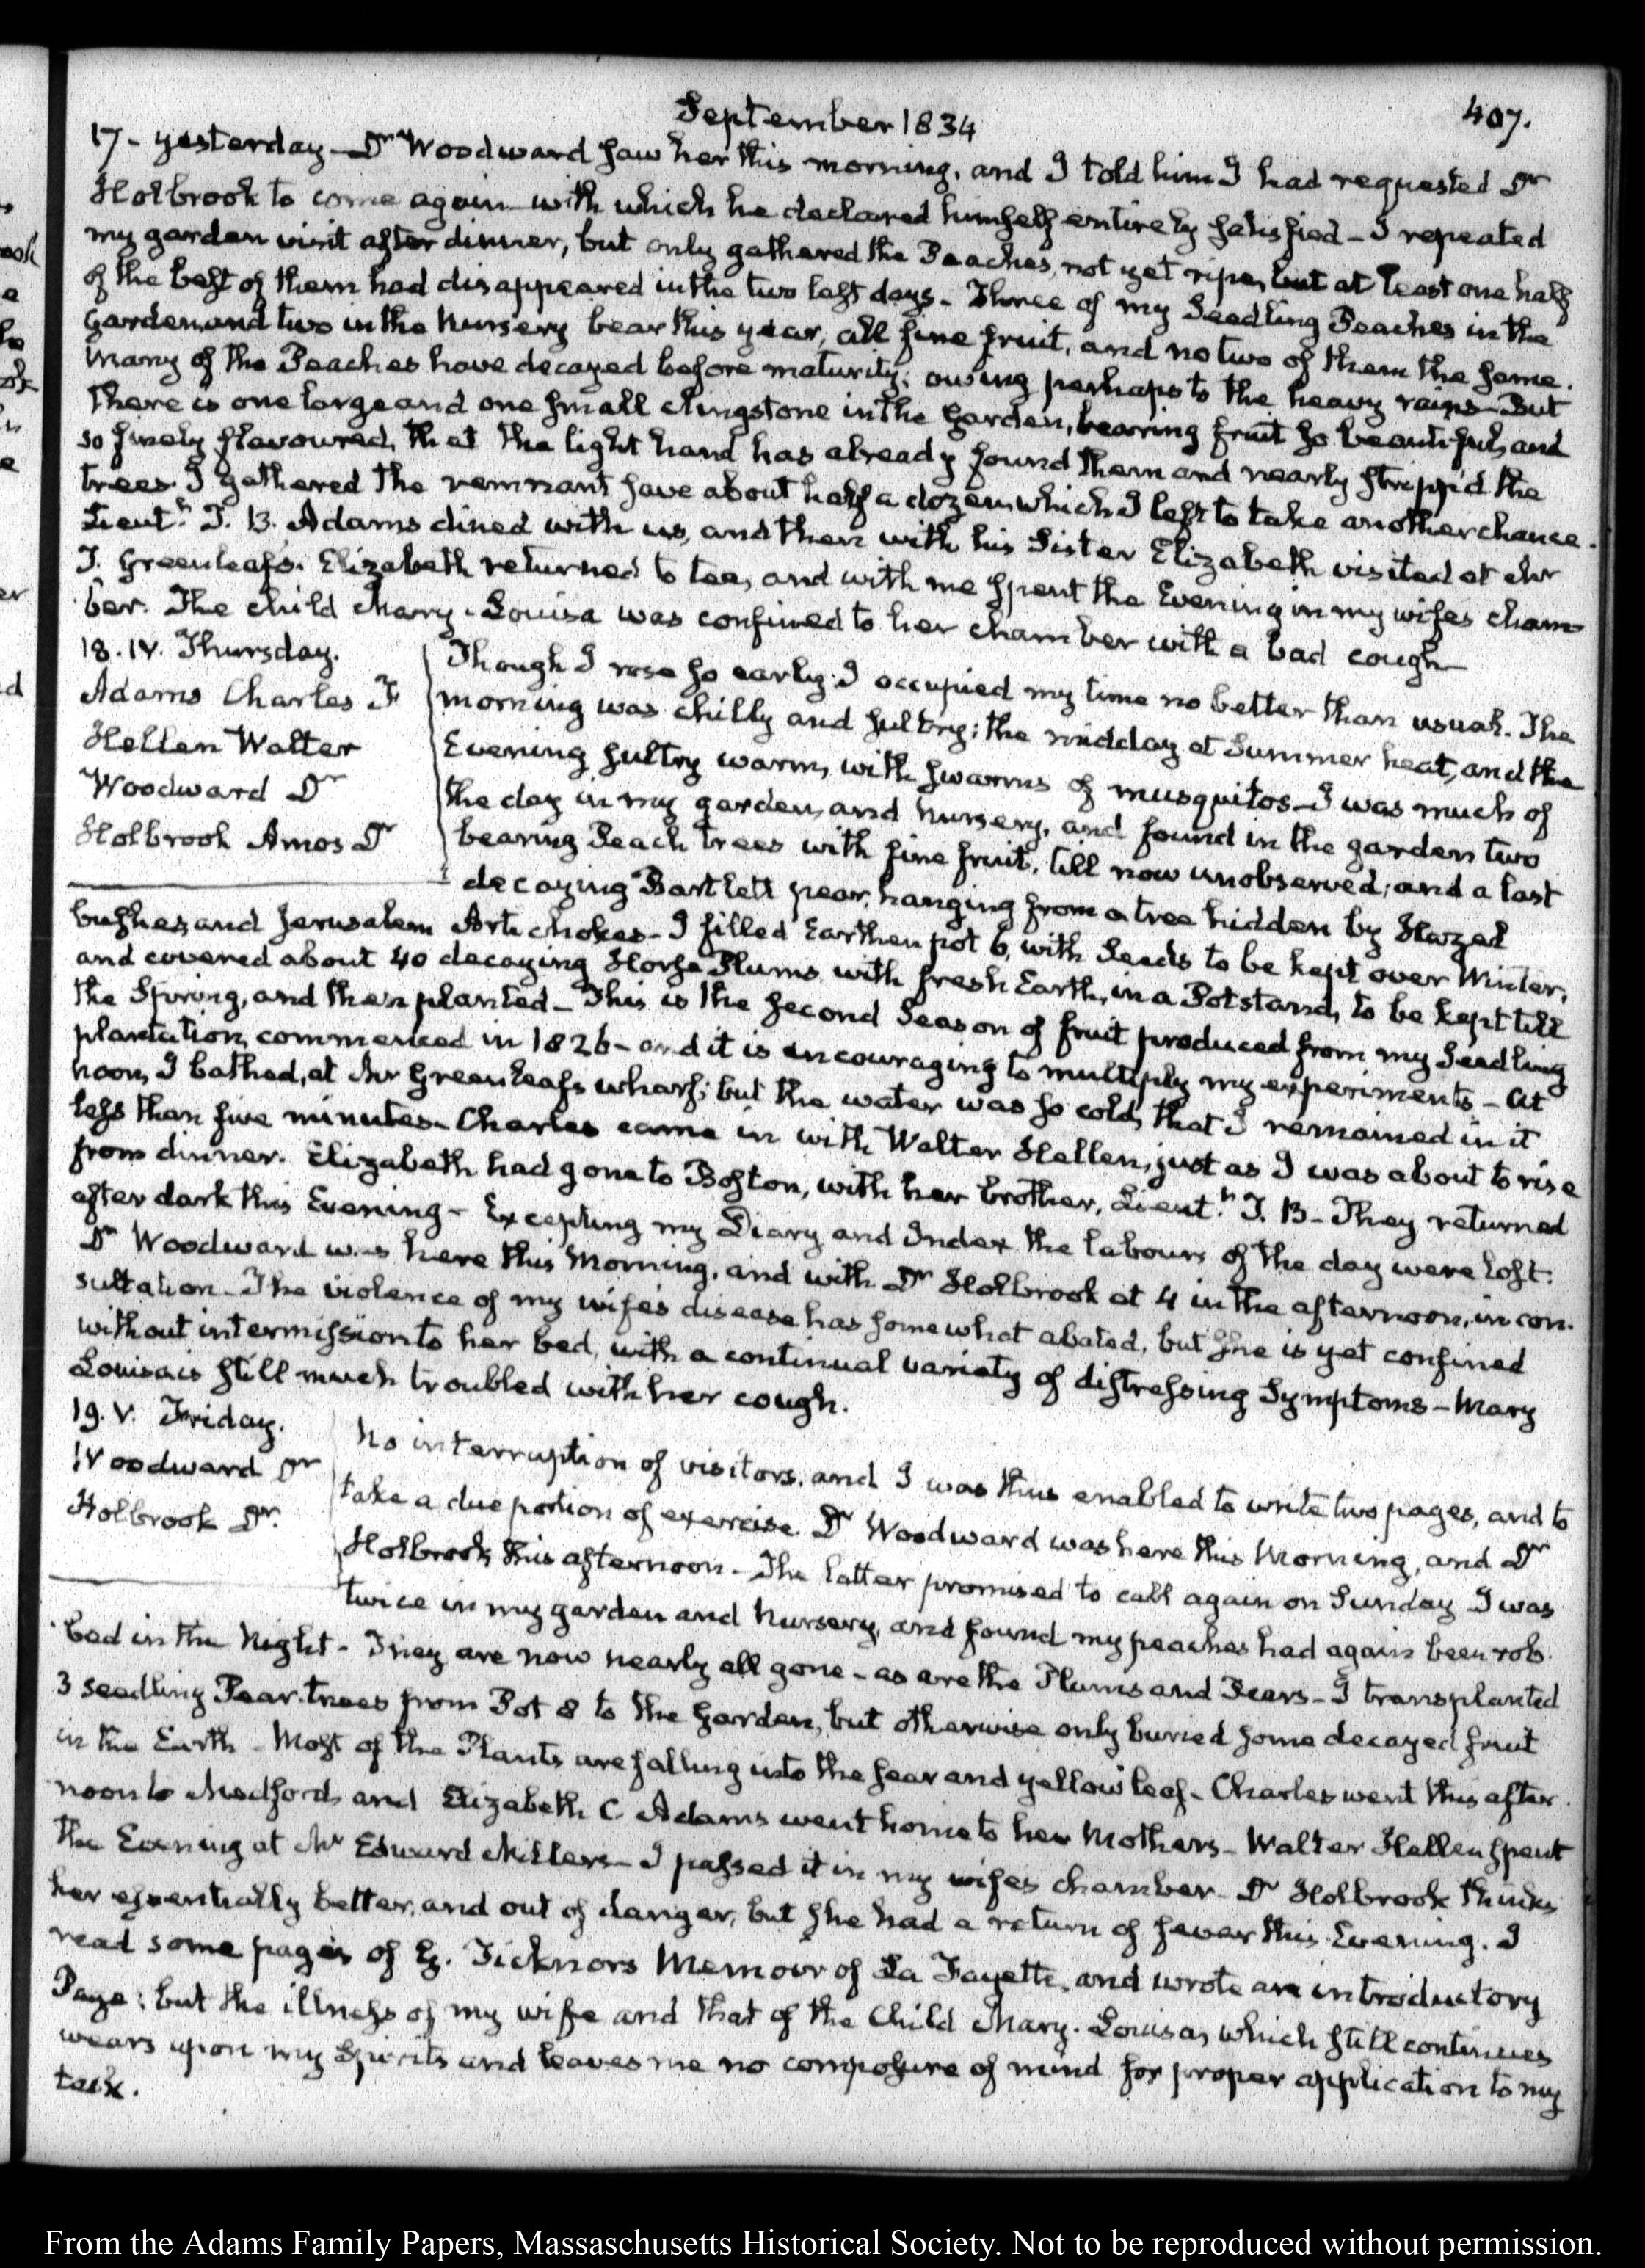 September 1834
407.
17 - yesterday - Dr Woodward saw her this morning, and I told him I had requested Dr
Holbrook to come again with which he declared himself entirely satisfied - I repeated
my garden visit after dinner, but only gathered the Peaches, not yet ripe, but at least one half
of the best of them had disappeared in the two last days - Three of my Seedling Peaches in the
Garden, and two in the Nursery bear this year, all fine fruit, and no two of them the same.
Many of the Peaches have decayed before maturity; owing perhaps to the heavy rains - But
There is one large and one small clingstone in the Garden, bearing fruit so beautiful, and
so finely flavoured, that the light hand has already found them and nearly stripp'd the
trees. I gathered the remnant save about half a dozen which I left to take another chance.
Lieut.t T. B. Adams dined with us, and then with his Sister Elizabeth visited at Mr
T. Greenleaf's. Elizabeth returned to tea, and with me spent the Evening in my wife's cham-
ber. The child Mary-Louisa was confined to her chamber with a bad cough -
18. IV. Thursday.
Adams Charles F
Hellen Walter
Woodward Dr
Holbrook Amos Dr
Though I rose so early I occupied my time no better than usual. The
morning was chilly and sultry; the midday at Summer heat, and the
Evening sultry warm, with swarms of musquitos - I was much of
the day in my garden, and Nursery, and found in the garden two
bearing Peach trees with fine fruit, till now unobserved; and a last
decaying Bartlett pear, hanging from a tree hidden by Hazel
bushes, and Jerusalem Artichokes - I filled Earthen pot 6, with Seeds to be kept over Winter,
and covered about 40 decaying Horse Plums with fresh Earth, in a Potstand, to be kept till
the Spring, and then planted - This is the second Season of fruit produced from my Seedling
plantation, commenced in 1826 - and it is encouraging to multiply my experiments - At
noon, I bathed, at Mr Greenleafs wharf; but the water was so cold, that I remained in it
less than five minutes - Charles came in with Walter Hellen, just as I was about to rise
from dinner. Elizabeth had gone to Boston, with her brother, Lieut.t T. B - They returned
after dark this Evening - Excepting my Diary and Index the labours of the day were lost:
Dr Woodward was here this Morning, and with Dr Holbrook at 4 in the afternoon, in con-
sultation - The violence of my wife's disease has somewhat abated, but She is yet confined
without intermission to her bed, with a continual variety of distressing Symptoms - Mary
Louisa is still much troubled with her cough.
19. V. Friday.
Woodward Dr
Holbrook Dr.
No interruption of visitors, and I was thus enabled to write two pages, and to
take a due portion of exercise. Dr Woodward was here this Morning, and Dr
Holbrook, this afternoon - The latter promised to call again on Sunday I was
twice in my garden and Nursery, and found my peaches had again been rob-
bed in the Night - They are now nearly all gone - as are the Plums and Pears - I transplanted
3 seedling Pear-trees from Pot 8 to the Garden, but otherwise only buried some decayed fruit
in the Earth - Most of the Plants are falling into the sear and yellow leaf - Charles went this after-
noon to Medford, and Elizabeth C Adams went home to her Mothers - Walter Hellen spent
the Evening at Mr Edward Millers - I passed it in my wife's chamber - Dr Holbrook thinks
her essentially better, and out of danger, but she had a return of fever this Evening. I
read some pages of G. Ticknors Memoir of La Fayette, and wrote an introductory
Page; but the illness of my wife and that of the Child Mary-Louisa, which still continues
wears upon my Spirits and leaves me no composure of mind for proper application to my
task.
From the Adams Family Papers, Massachusetts Historical Society. Not to be reproduced without permission.